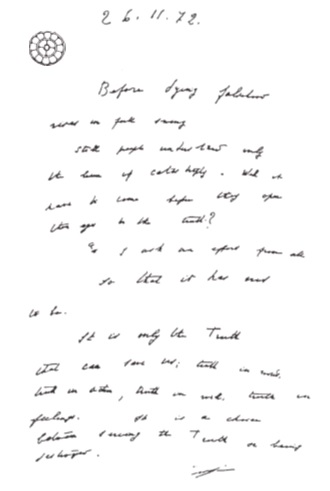 26.11.72.
Before dying falsehood
rises in full swing
Still people understand only
the lesson of catastrophy. Will it
have to come before they open
their eyes to the truth?
I ask an effort from all
so that it has not
to be.
It is only the Truth
that can save us; truth in words,
truth in action, truth in will, truth in
feelings. It is a choice
between serving the Truth or being
destroyed.